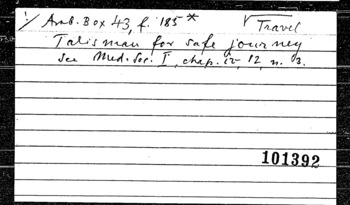 Arab. Box 43, f. 185*
Travel
Talisman for safe journey
See Med. Soc. I, chap. iv, 12, n. 3.
101392